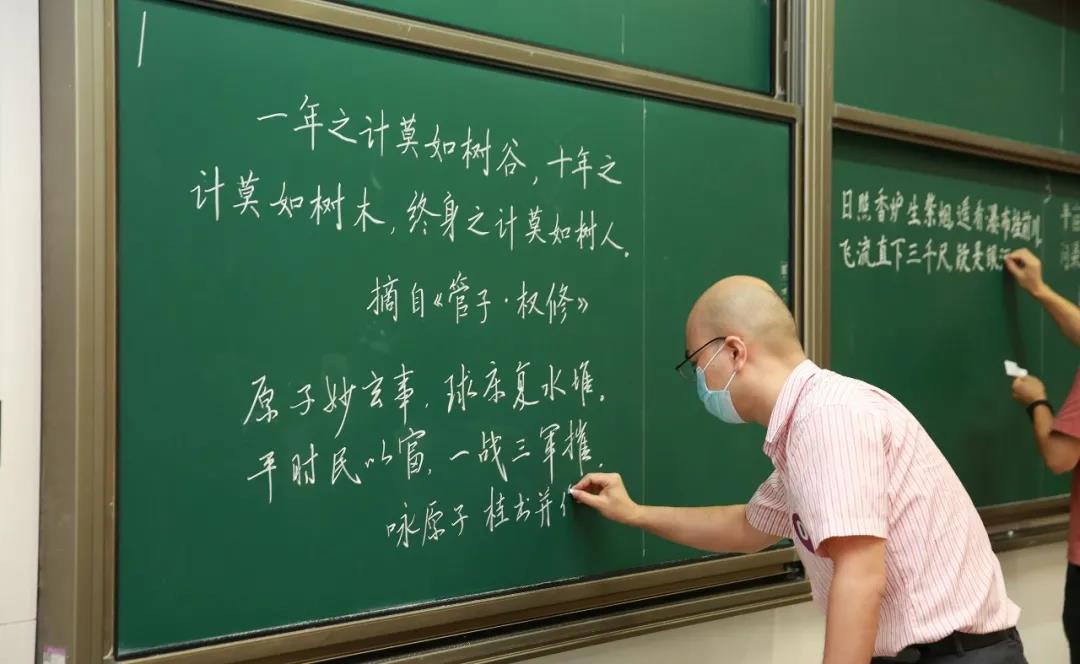 一年之计莫如树谷,十年之
计莫如树木,终身之计莫如树人。
摘自《管子·权修》
原子妙玄事,球床复水堆。
平时民以富,一战三军摧。
咏原子 桂书并
日照香炉生紫烟遥看瀑布挂前川
飞流直下三千尺疑是银